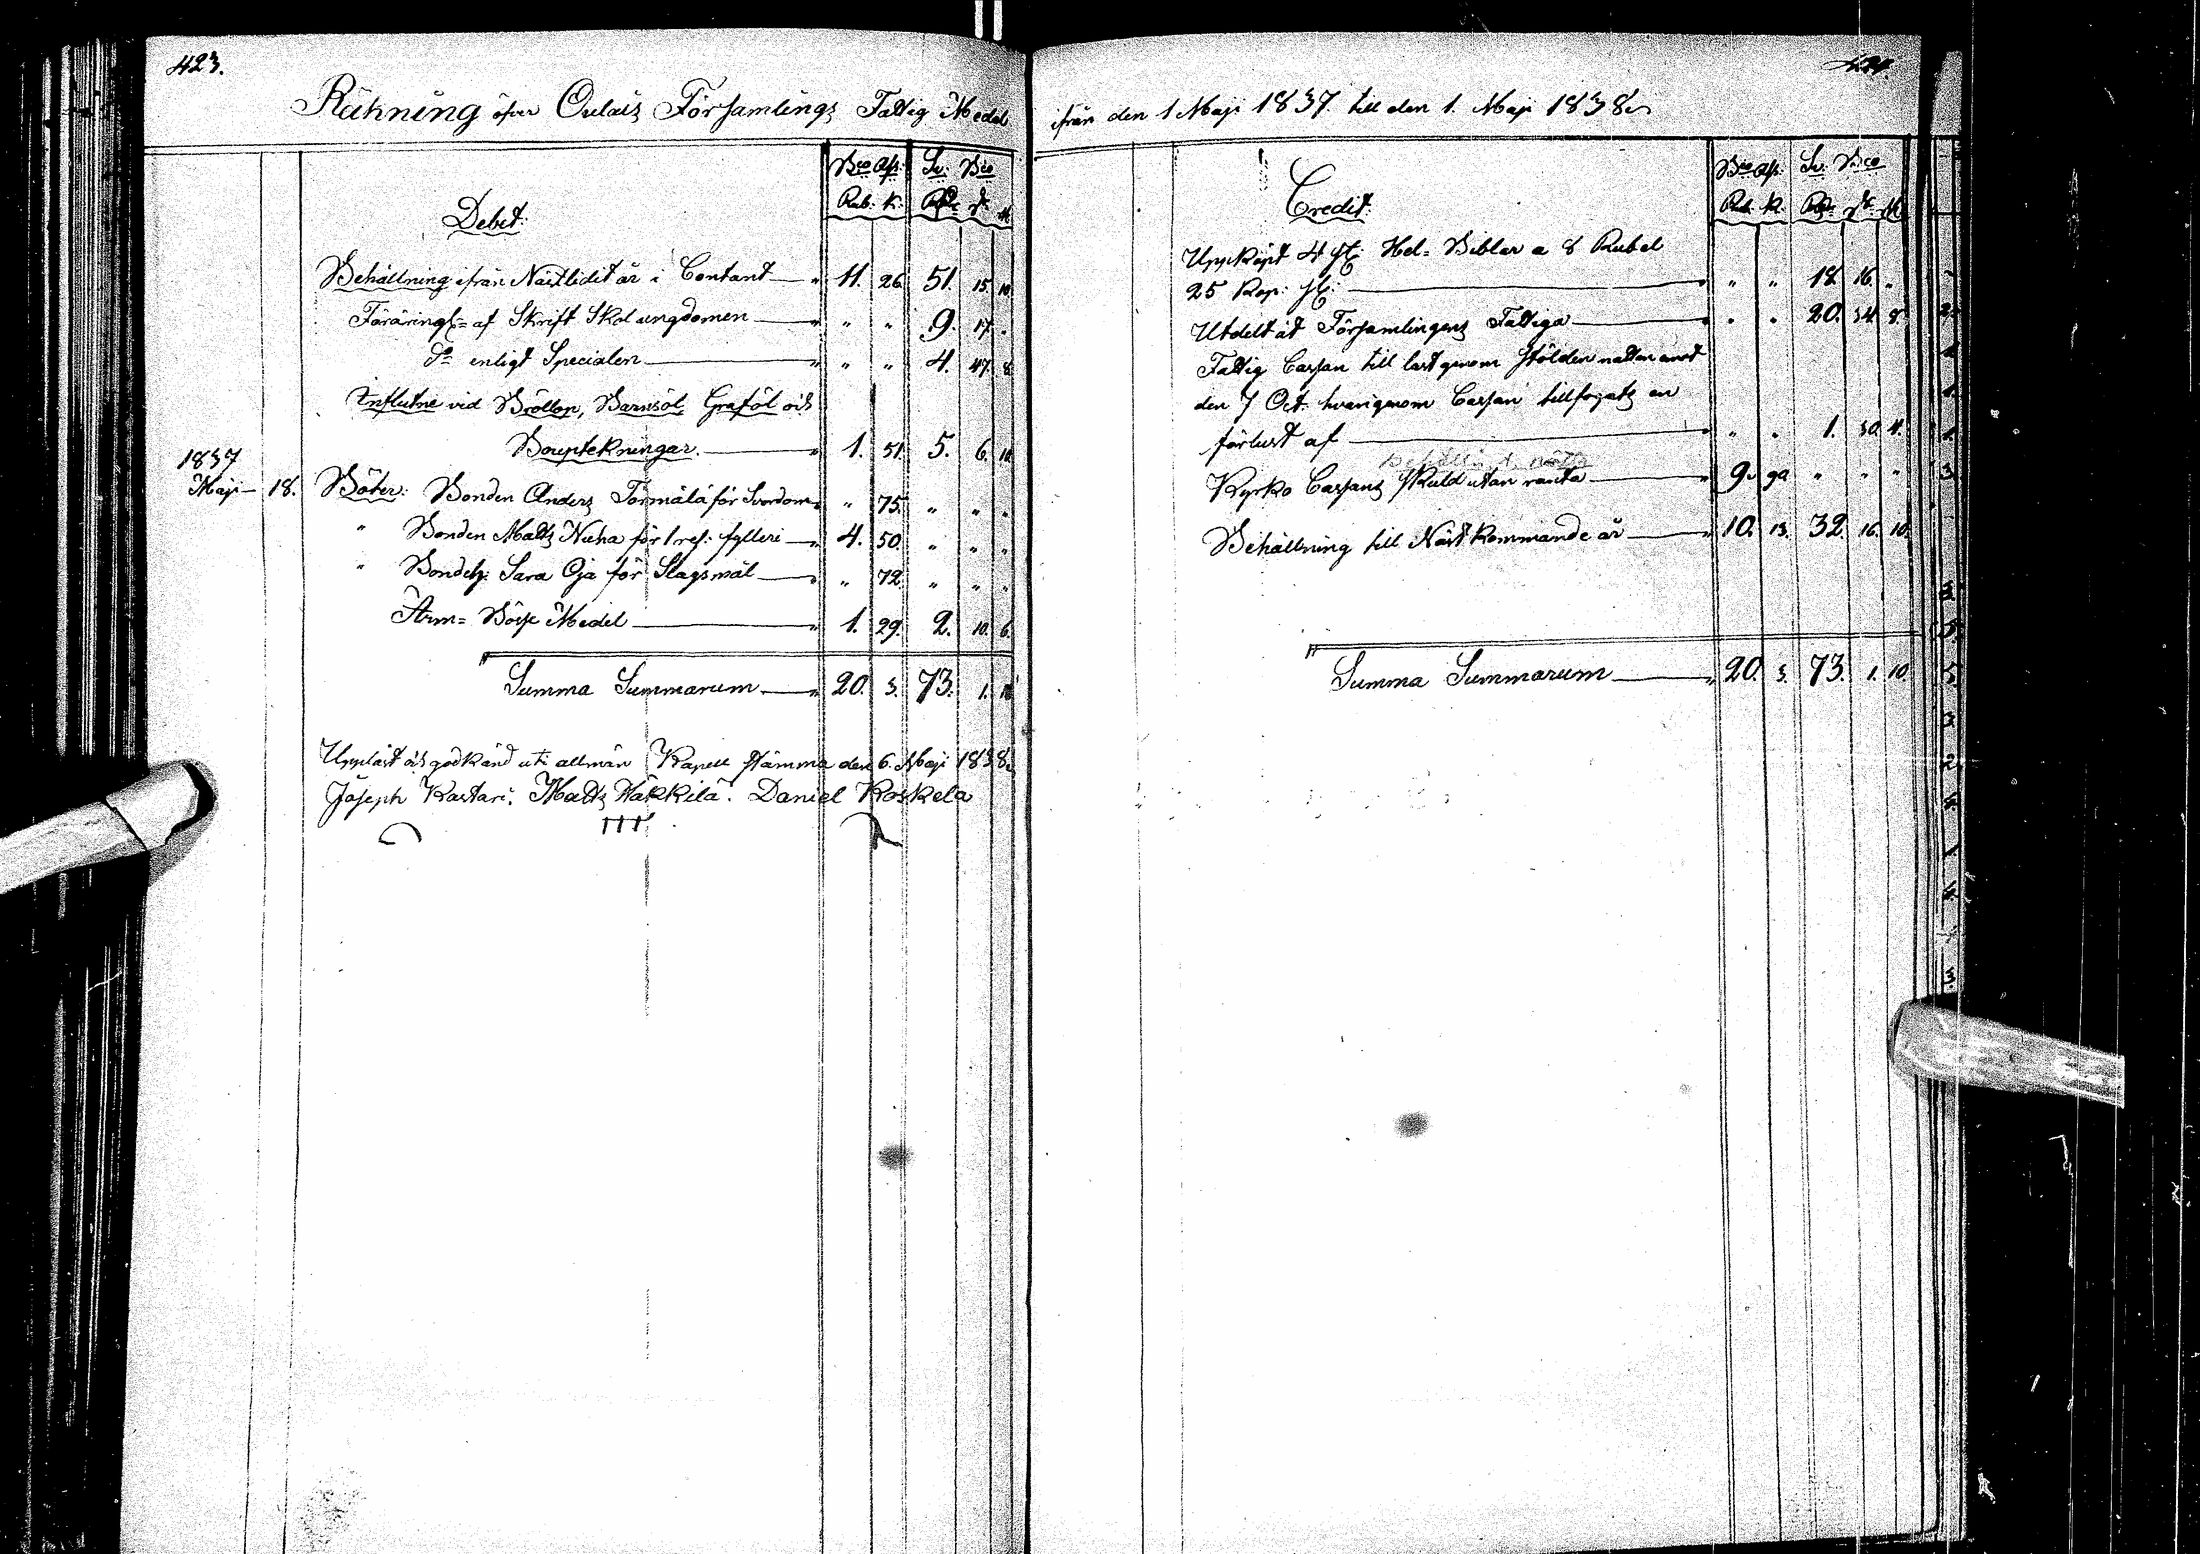 423.
Räkning öfver Oulais Församlings Fattig Medel
Bco Ass: Sv: Bco
Debet: Rub: K: Rdr s. rst
Behållning ifrån Nästlidit år i Contant — " 11. 26. 51. 15. 10.
Föräringk= af Skrift Skol ungdomen — " " " 9. 17. "
Do enligt Specialen — " " " 4. 47. 8.
Influtne vid Bröllop, Barnsöl Graföl och
Bouptekningar. — " 1. 51. 5. 6. 10.
1837
Maji — 18. Böter: Bonden Anders Törmälä för Svordom " 75. " " "
" Bonden Matts Nicha för 1 res: fylleri — 4. 50. " " "
" Bondeh: Sara Oja för Slagsmål — " " 72. " " "
Arm= Börse Medel — " 1. 29. 2. 10. 6.
Summa Summarum — " 20. 3. 73. 1. 10.
Uppläst och godkänd uti allmän Kapell stämma den 6. Maji 1838.
Joseph Kastari. Matts Häkkilä. Daniel Koskela
424.
ifrån den 1 Maji 1837 till den 1. Maji 1838.
Bco Ass: Sv: Bco
Credit: Rub. K. Rdr s. rst
Uppköpt 4 st: Hel= Biblar a 8 Rubel
25 Kop: st: — " " 18. 16. "
Utdelt åt Församlingens Fattiga — " " 20. 34. 8.
Fattig Cassan till last genom stölden natten emot
den 7 Oct: hvarigenom Cassan tillfogats en
förlust af — " " 1. 30. 4.
Kyrko Cassans skuld utan ränta — 9. 90 " " "
Behållning till Nästkommande år — 10. 13. 32. 16. 10.
Summa Summarum — " 20. 3. 73. 1. 10